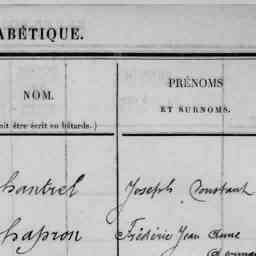 ABÉTIQUE.
PRÉNOMS
NOM.
ET SURNOMS.
oit être écrit en bâtarde.)
hantrel Joseph Constant
hapron Frédéric Jean Anne